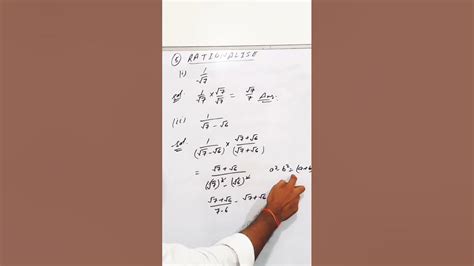 ⑤ RATIONALISE
(i) 1/√7
Sol. 1/√7 × √7/√7 = √7/7 Ans.
(ii) 1/(√7 - √6)
1/(√7 - √6) × (√7 + √6)/(√7 + √6)
= (√7 + √6)/((√7)² - (√6)²) a² - b² = (a+b
(√7 + √6)/(7 - 6) - √7 + √6